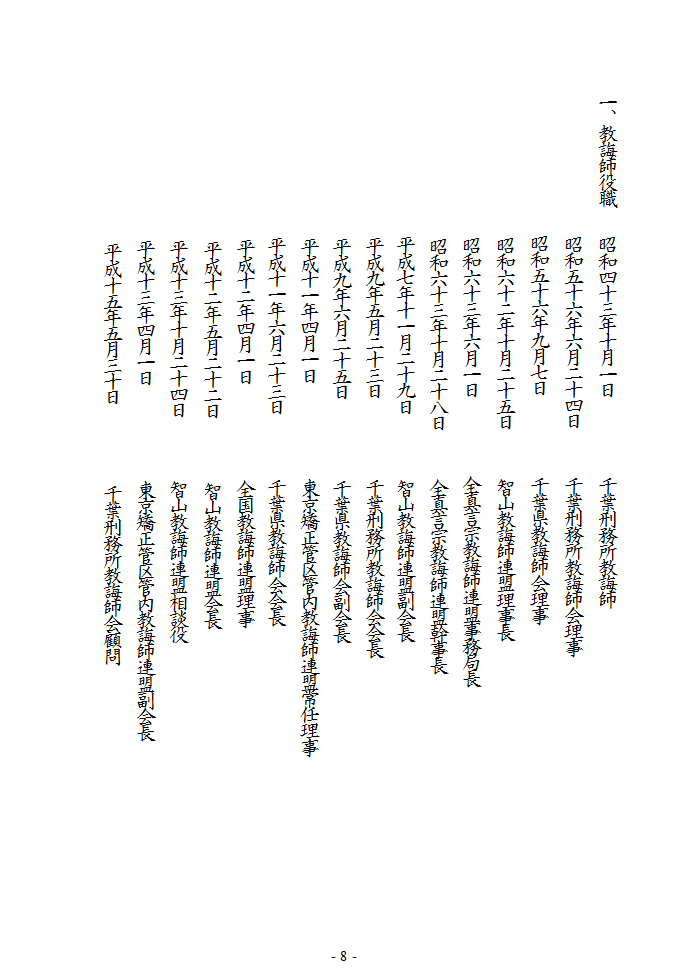 一、教誨師役職
昭和四十三年十月一日　千葉刑務所教誨師
昭和五十六年六月二十四日　千葉刑務所教誨師会理事
昭和五十六年九月七日　千葉県教誨師会理事
昭和六十二年十月二十五日　智山教誨師連盟理事長
昭和六十三年六月一日　全真言宗教誨師連盟事務局長
昭和六十三年十月二十八日　全真言宗教誨師連盟幹事長
平成七年十一月二十九日　智山教誨師連盟副会長
平成九年五月二十三日　千葉刑務所教誨師会会長
平成九年六月二十五日　千葉県教誨師会副会長
平成十一年四月一日　東京矯正管区管内教誨師連盟常任理事
平成十一年六月二十三日　千葉県教誨師会会長
平成十二年四月一日　全国教誨師連盟理事
平成十二年五月二十二日　智山教誨師連盟会長
平成十三年十月二十四日　智山教誨師連盟相談役
平成十三年四月一日　東京矯正管区管内教誨師連盟副会長
平成十五年五月三十日　千葉刑務所教誨師会顧問
- 8 -